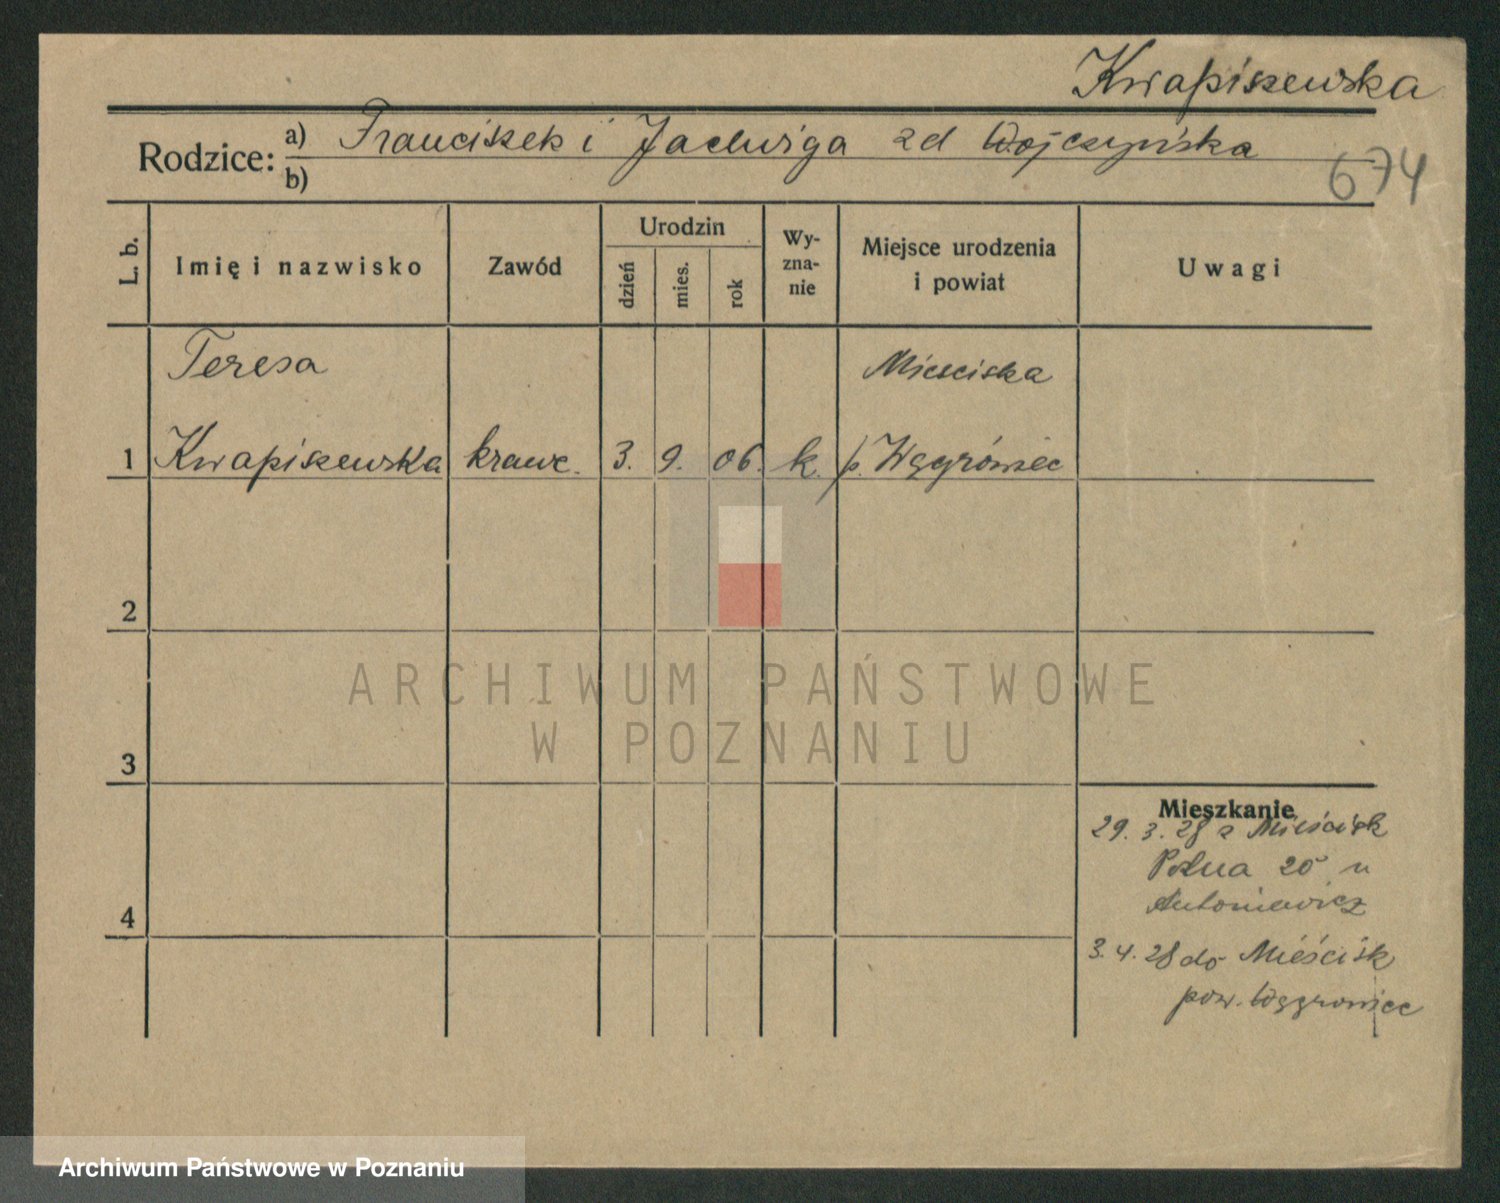 Kwapiszewska
Rodzice: a) Franciszek i Jadwiga zd Wojczyńska
b)
674
L. b.
Imię i nazwisko
Zawód
Urodzin
dzień
mies.
rok
Wy-
zna-
nie
Miejsce urodzenia
i powiat
Uwagi
Teresa
Miesciska
1 Kwapiszewska krawc. 3. 9. 06. k. p. Wągrówiec
2
ARCHIWUM PAŃSTWOWE
W POZNANIU
3
Mieszkanie
29. 3. 28 z Mieścisk
Polna 20 u
Antoniewicz
4
3. 4. 28 do Mieścisk
pow. Wągrowiec
Archiwum Państwowe w Poznaniu